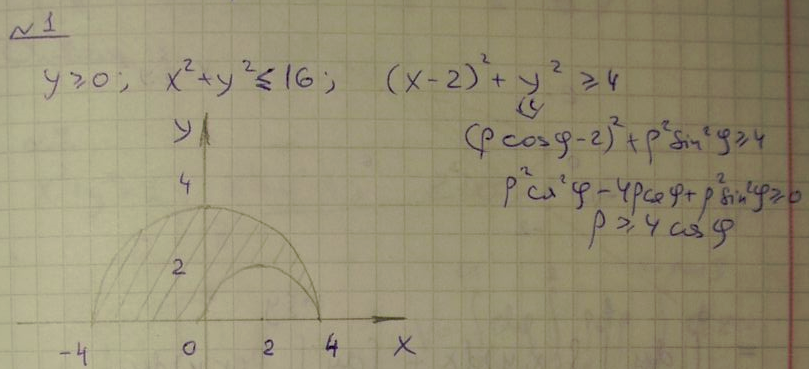 №1
y ≥ 0; x² + y² ≤ 16; (x-2)² + y² ≥ 4
(ρ cosφ - 2)² + ρ² sin²φ ≥ 4
ρ² cos²φ - 4ρ cosφ + ρ² sin²φ ≥ 0
ρ ≥ 4 cosφ
y
4
2
-4 0 2 4 x